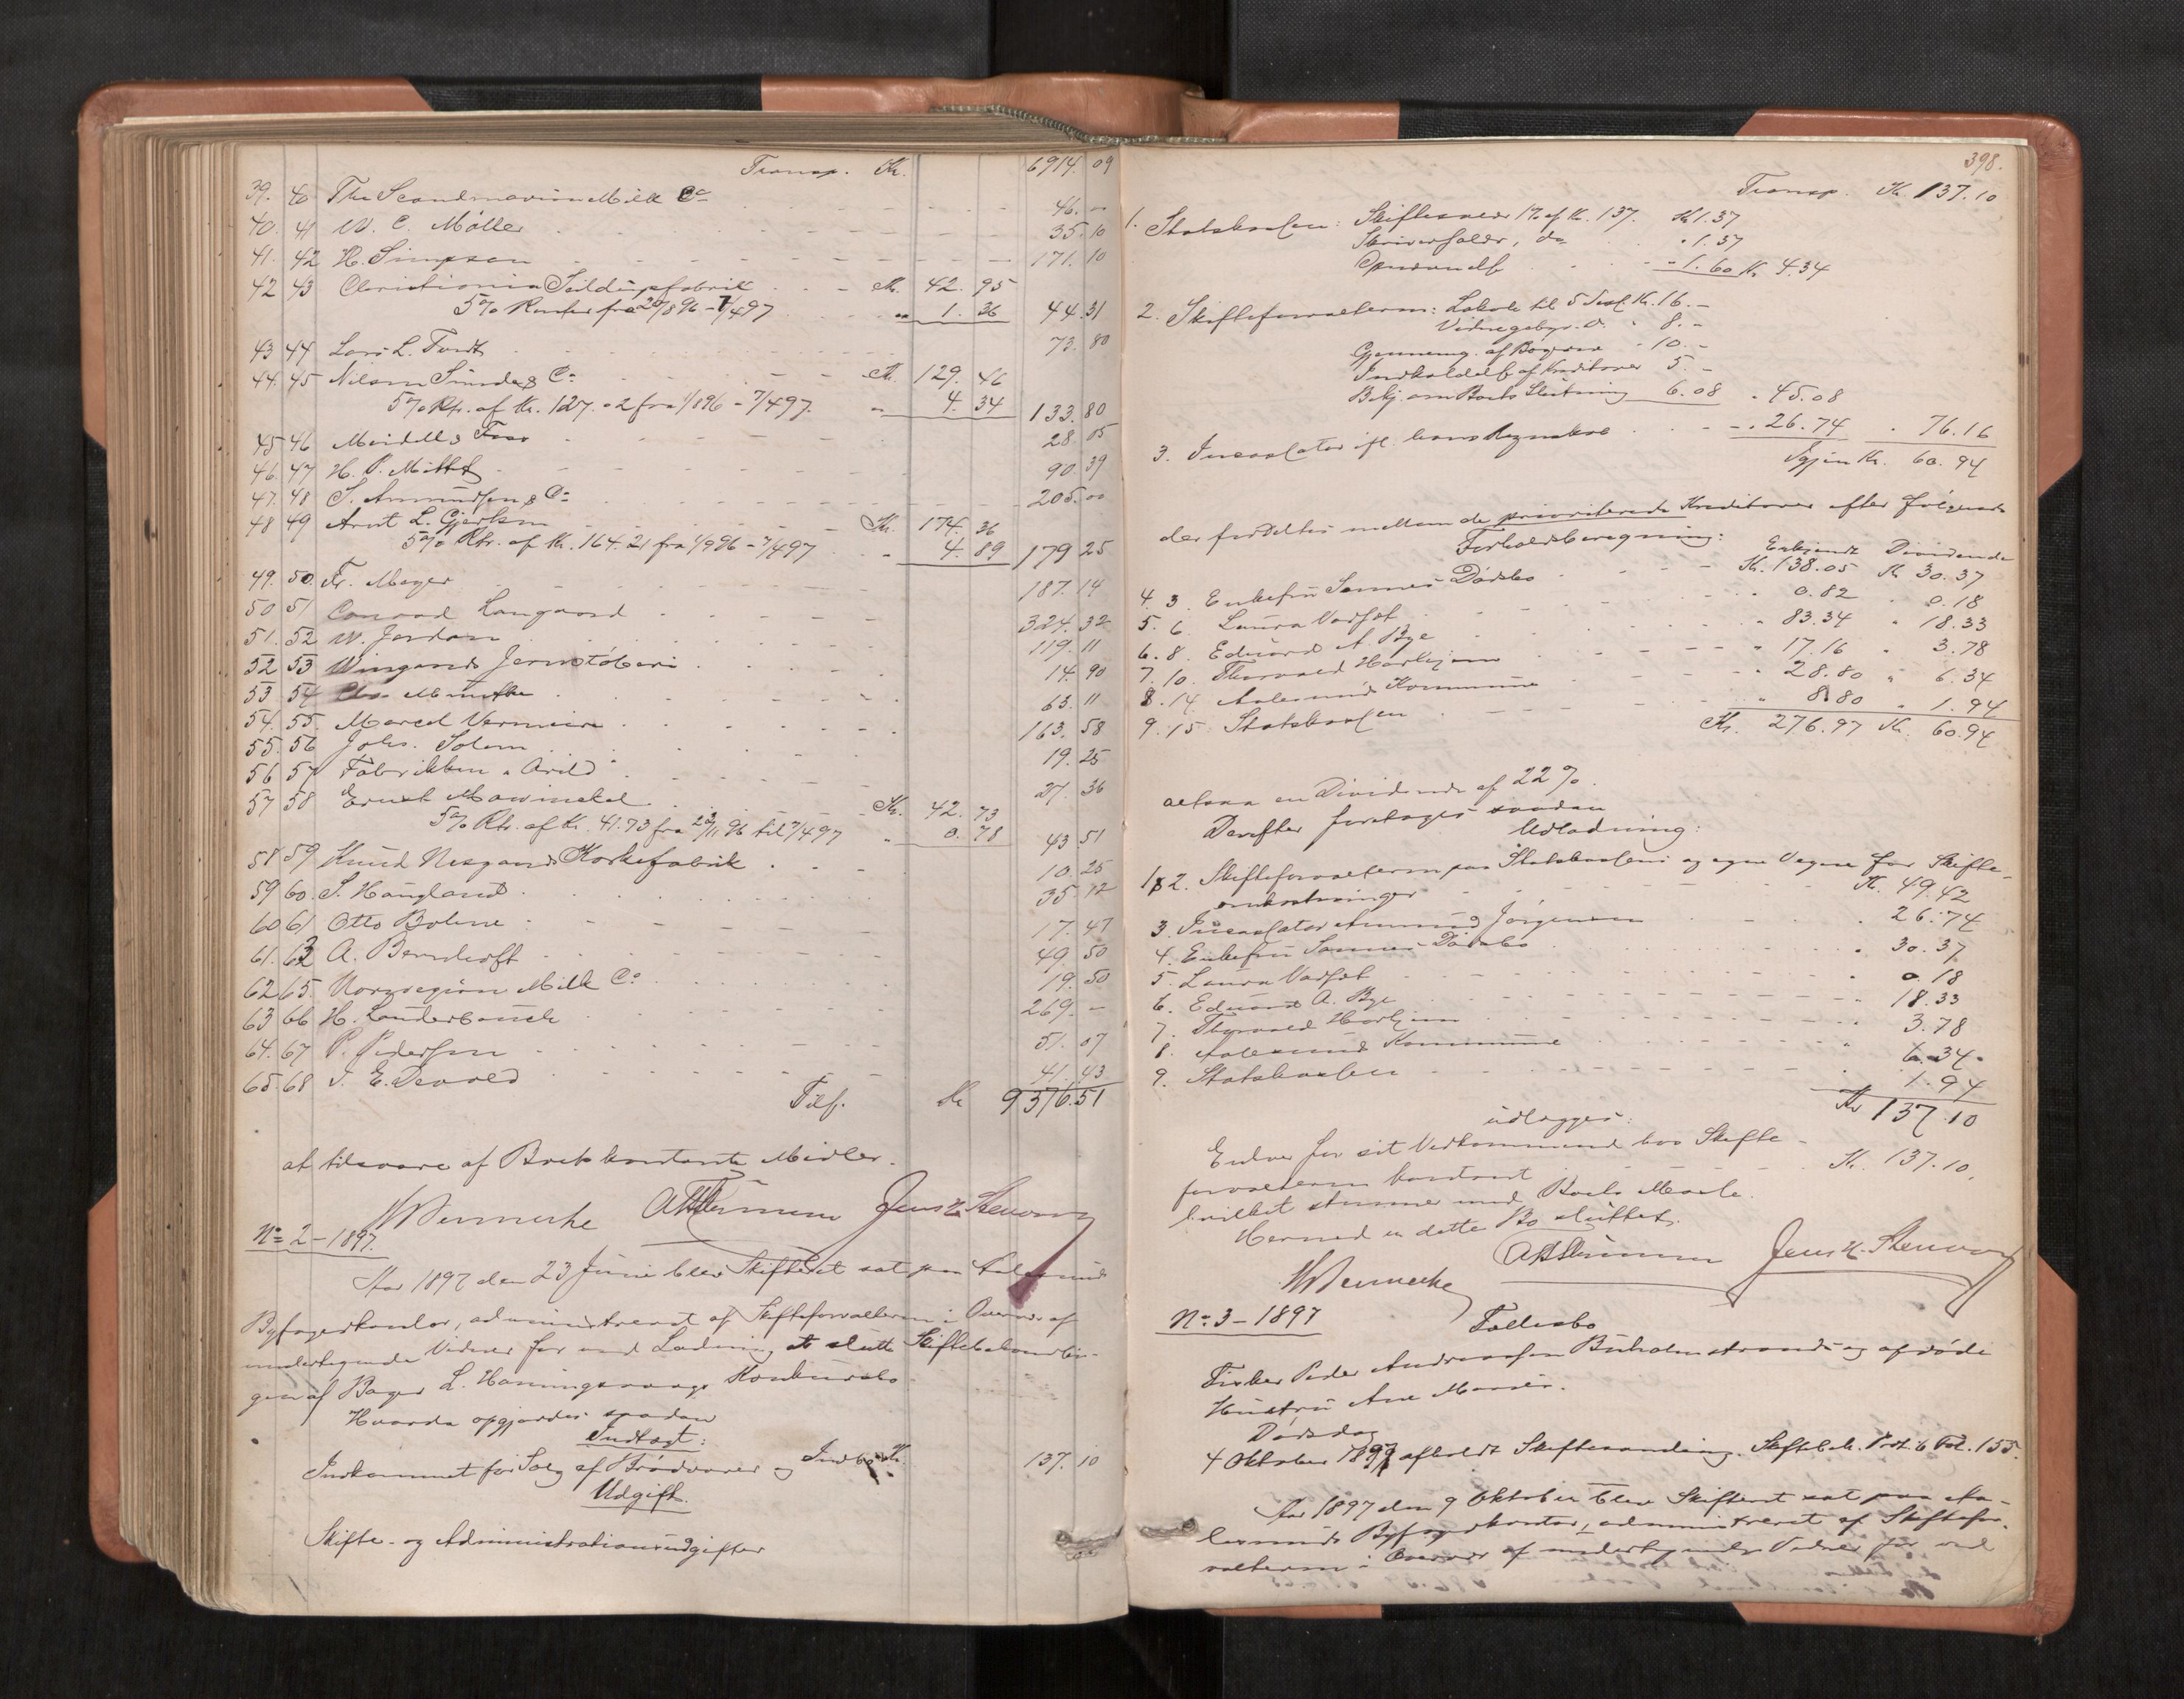 Transp. Kr. 6914.09
39. 40 The Scandinavian Milk Co 46.-
40. 41 W. C. Møller 35.10
41. 42 H. Simpson 171.10
42 43 Christiania Seildugsfabrik Kr. 42.95
5% Renter fra 20/8 96 - 7/4 97 " 1.36 44.31
43 44 Lars L. 73.80
44. 45 Nilsen Sunde & Co Kr. 129.46
5% Rtr. af Kr. 127.02 fra 1/8 96 - 7/4 97. " 4.34 133.80
45 46 28.05
46. 47 H. P. 90.39
47. 48 S. Amundsen & Co 205.00
48 49 Arnt L. Gjertsen Kr. 174.36
5% Rtr. af Kr. 164.21 fra 1/9 96 - 7/4 97 " 4.89 179.25
49. 50. Fr. Meyer 187.14
50 51 Conrad Langaard 324.32
51. 52 W. Jordan 119.11
52 53 Wingaards Jernstøberi 14.90
53 54 Chr. Munthe 63.11
54. 55. Marcel Vermeire 163.58
55. 56 Johs. Solem 19.25
56 57 Fabrikken "Arild" 27.36
57 58 Ernst Mowinckel Kr. 42.73
5% Rtr. af Kr. 41.73 fra 23/11 96 til 7/4 97 " 0.78 43.51
58 59 Knud Korkefabrik 10.25
59 60. S. Haugland 35.12
60 61 Otto Bohne 17.47
61. 62 A. Berndorff 49.50
62 65. Norvegian Milk Co 19.50
63 66 H. 269.-
64. 67 P. Pedersen 51.07
65. 68 I. E. Devold 41.43
Tils. Kr 9376.51
at tilsvare af Boets kontante Midler.
Jens H.
No 2 - 1897.
Aar 1897 den 23 Juni blev Skifteret sat paa Aalesunds
Byfogedkontor, administreret af Skifteforvalteren i Overvær af
undertegnede Vidner for ved Lodning at slutte Skiftebehandlin-
gen af Bager L. Konkursbo
Hvorda opgjordes saadan
Indtægt:
Indkommet for Salg af Brødvarer og Indbo Kr. 137.10
Udgift.
Skifte- og Administrationsudgifter
398.
Transp. Kr 137.10
1. Statskassen: Skiftesalær 1% af Kr. 137. Kr 1.37
Skriversalær, do " 1.37
" 1.60 Kr. 4.34
2. Skifteforvalteren: Lokale til 5 Kr. 16.-
Vidnegebyr. do. " 8.-
Gjennemg. af Bøgerne " 10.-
Indkaldelse af Kreditorer 5.-
Bekj. om Boets Slutning 6.08 " 45.08
3. Incassator ifl. hans Regnskab " 26.74 " 76.16
Igjen Kr. 60.94
der fordeltes mellem de prioriterede Kreditorer efter følgende
Forholdsberegning: Erkjendt Dividende
4. 3. Enkefru Sannes Dødsbo Kr. 138.05 Kr 30.37
5. 6. Laura 0.82 " 0.18
6. 8. Edvard A. Bye " 83.34 " 18.33
7. 10. Thorvald " 17.16 " 3.78
8. 14. Aalesunds Kommune " 28.80 " 6.34
9. 15. Statskassen " 8.80 " 1.94
Kr. 276.97 Kr. 60.94
altsaa en Dividende af 22%.
Derefter foretages saadan
Udlodning:
1 & 2. Skifteforvalteren paa Statskassens og egne Vegne for Skifte-
omkostninger Kr. 49.42
3. Incassator Amund Jørgensen " 26.74
4. Enkefru Sannes Dødsbo " 30.37
5. Laura " 0.18
6. Edvard A. Bye " 18.33
7. Thorvald " 3.78
8. Aalesund Kommune " 6.34
9. Statskassen 1.94
Kr 137.10
udlægges:
Enhver for sit Vedkommende hos Skifte-
forvalteren kontant Kr. 137.10.
hvilket stemmer med Boets Masse.
Hermed er dette Bo sluttet.
Jens H.
No. 3 - 1897
Fællesbo
Fisker Peder Andreassen Buholmstrand og afdøde
Hustru Ane
Dødsdag
4 Oktober 1897 afholdt Skiftesamling. Skiftebeh. Prot. 6 Fol. 155.
Aar 1897 den 9 Oktober blev Skifteret sat paa Aa-
lesunds Byfogedkontor, administreret af Skiftefor-
valteren i Overvær af undertegnede Vidner for ved